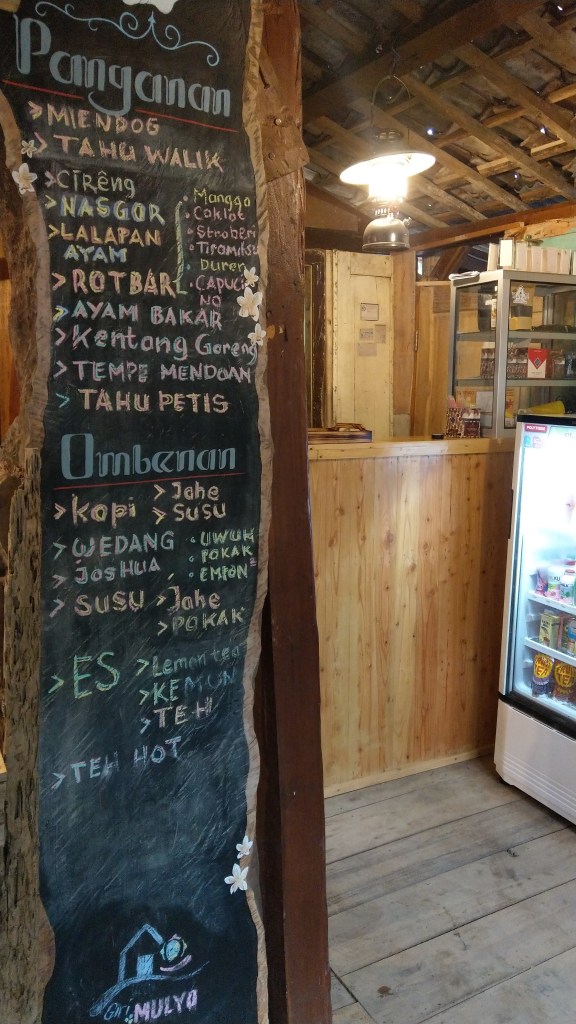 Panganan
> MIENDOG
> TAHU WALIK
> CIRENG
> NASGOR
> LALAPAN
AYAM
> ROTBAR
• Manggo
• Coklat
• Stroberi
• Tiramitsu
• Duren
• CAPUCI
NO
> AYAM BAKAR
> Kentang Goreng
> TEMPE MENDOAN
> TAHU PETIS
Ombenan
> Kopi > Jahe
> SUSU
> WEDANG • UWUH
• POKAK
• EMPON²
> JOSHUA
> SUSU > Jahe
> POKAK
> ES > Lemon tea
> KEMUN
> TEH
> TEH HOT
Giri
MULYO